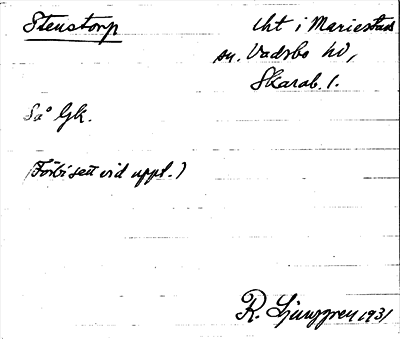 Stenstorp
Uht i Mariestads
sn. Vadsbo hd,
Skarab. l.
Så Gk.
(Förbisett vid uppt.)
R. Ljunggren 1931